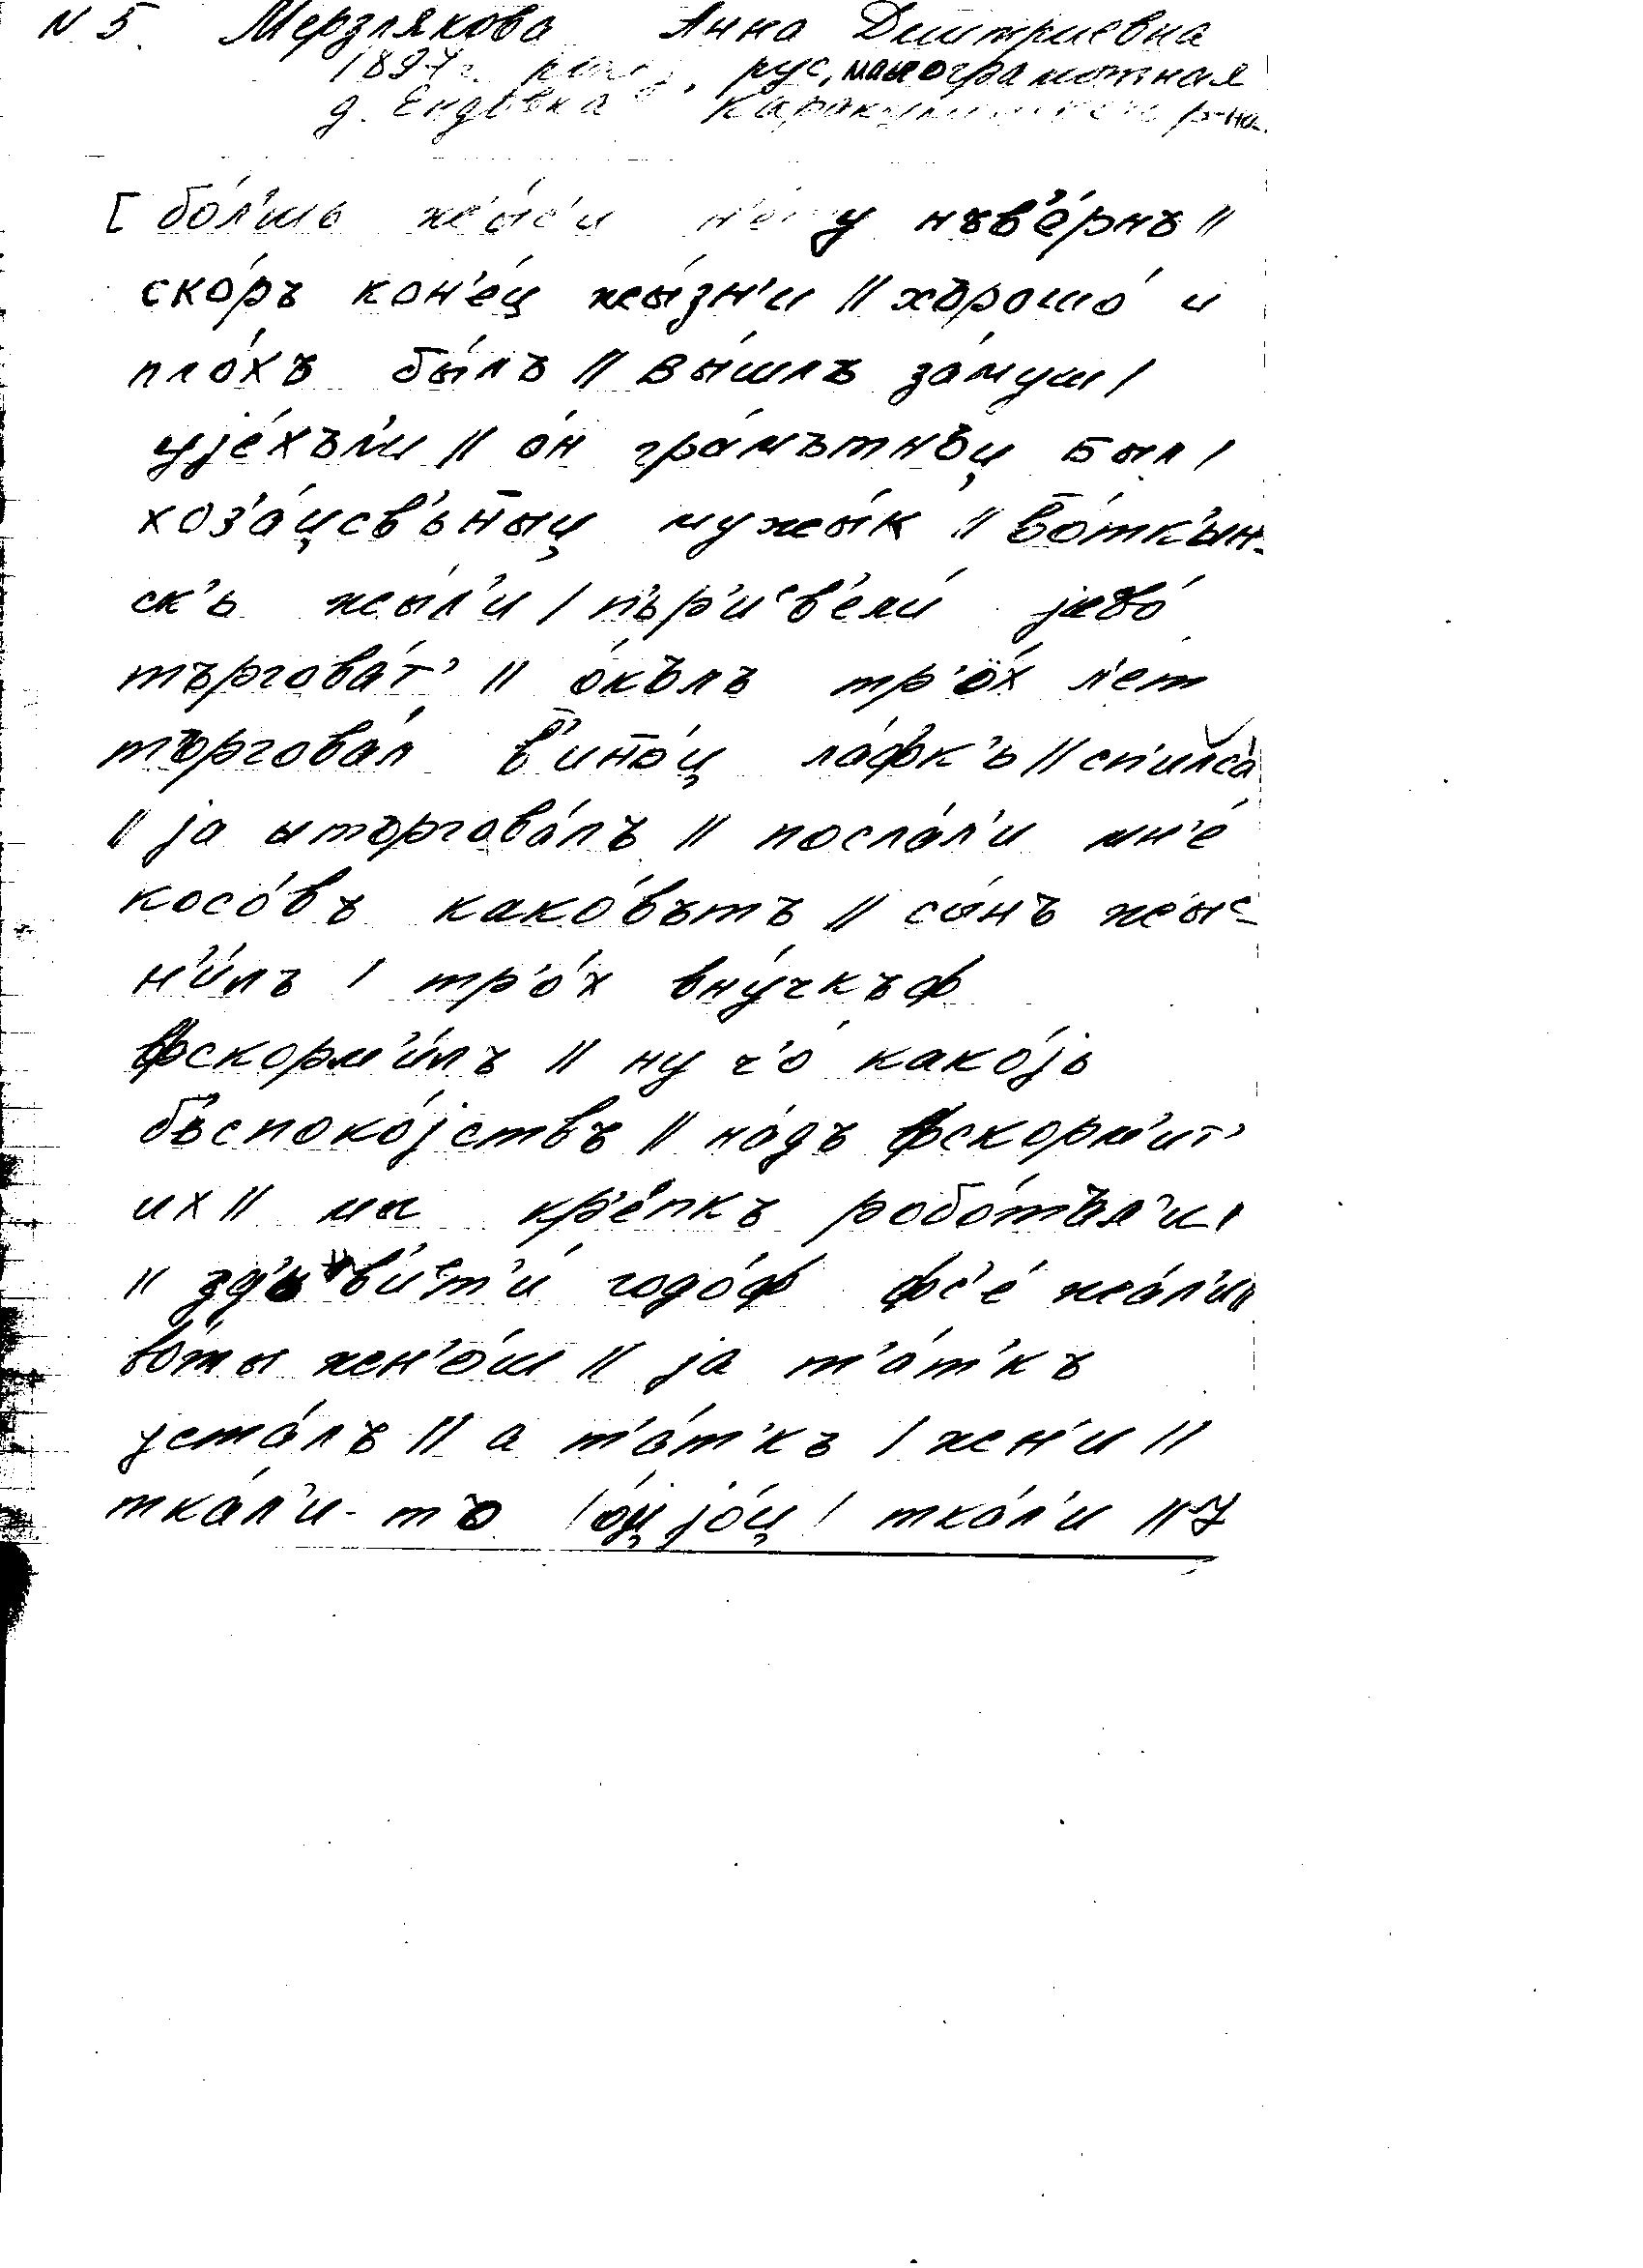 N 5. Мерзлякова Анна Дмитриевна
1897 г. рус, малограмотная
д. Ендовка р-на.
[ бо́л'шь нъв'е́рнъ //
ско́ръ кон'е́ц жы́зн'и // хърошо́ и
пло́хъ бы́лъ // вы́шлъ за́муш /
уjе́хъл'и // о́н гра́мътнъи̯ был /
хоз'а́и̯св'ьн̄ыи̯ мужы́к // в̄о́тк'ын-
ск'ь жы́л'и / п'ьр'иᵉв'ели́ jево́
търгова́т' // о́кълъ тр'о́х л'ет
търгова́л в̄'ин̄ои̯ ла́фк'ь // сп'илса́
// jа ыторгова́лъ // посла́л'и мн'е́
косо́въ како́вътъ // сы́нъ жыᵉ-
н'и́лъ / тр'о́х вну́чкъф
фскорм'и́лъ // ну ч'о́ како́jь
б'ьспоко́jствъ // на́дъ фскорм'ит'
их // мы кр'е́пкъ робо́тъл'и /
// годо́ф фс'е́ жа́л'и //
во́ты жн'о́ш // jа т'а́т'къ
уста́лъ // а т'а́т'къ / жн'и //
тка́л'и-то / ои̯ jо́и̯ / тка́л'и // ]